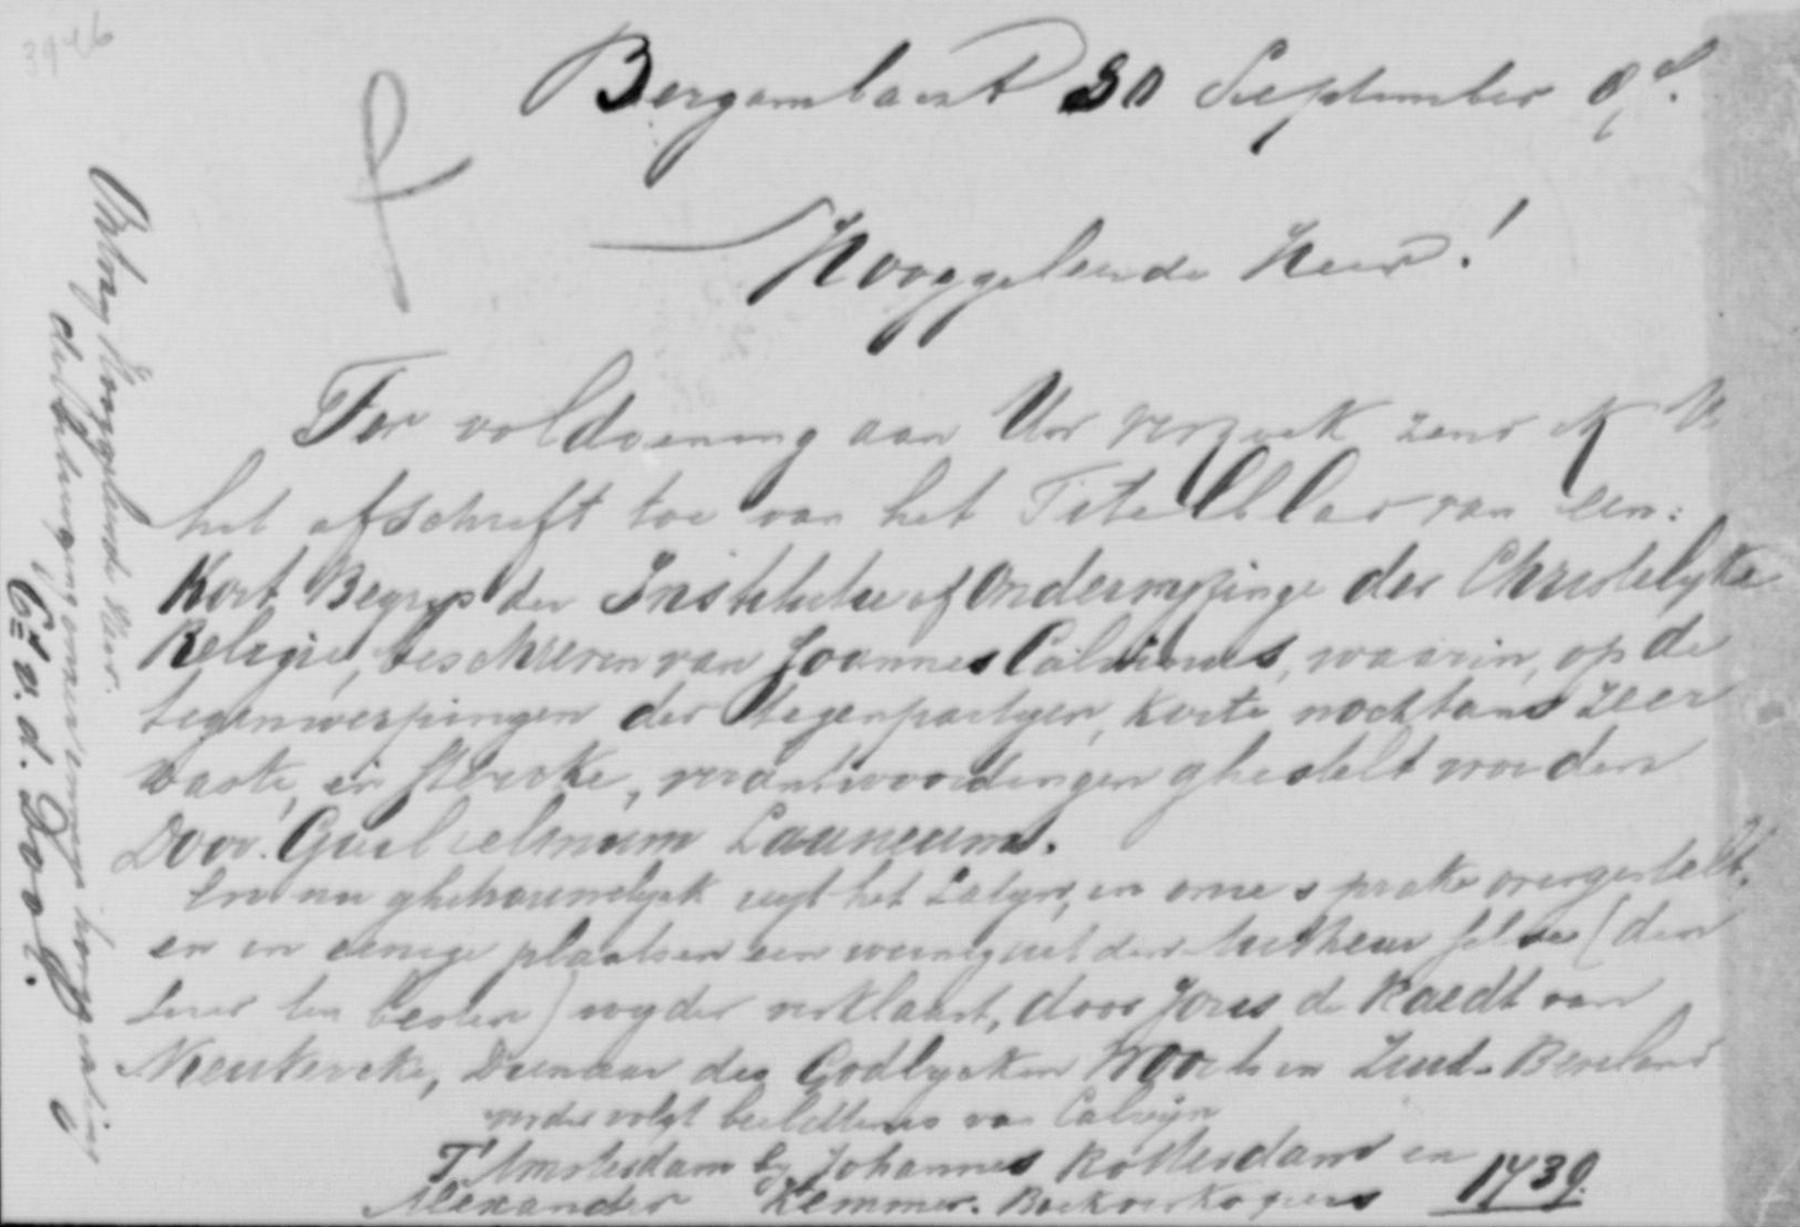 Bergambacht 30 September
Hooggeleerde Heer!
Ter voldoening aan Uw verzoek zend ik U
het afschrift toe van het Titelblad van een:
Kort Begryp der Institutie of Onderwyzinge der Christelyke
Religie, beschreven van Joannes Calvinus, waarin, op de
tegenwerpingen der tegenpartyen, korte, nochtans zeer
vaste, en stercke, verantwoordingen ghestelt worden
Door: Guilielmum Launeum.
En nu ghetrouwelyck uyt het Latyn, in onse sprake overgestelt,
en in eenige plaatsen een weinig uit den Autheur selve (den
Leser ten besten) wyder verklaart, door Joris de Raedt van
Meukercke, Dienaar des Godlycken Woorts in Zuid-Beveland
verder volgt beeldtenis van Calvijn
T'Amsterdam by Johannes Rotterdam en
Alexander Klemmer. Boekverkopers 1739.
Ontvang Hooggeleerde Heer.
de betuiging onzer hoogachting
G. v. d. Dool.
3946